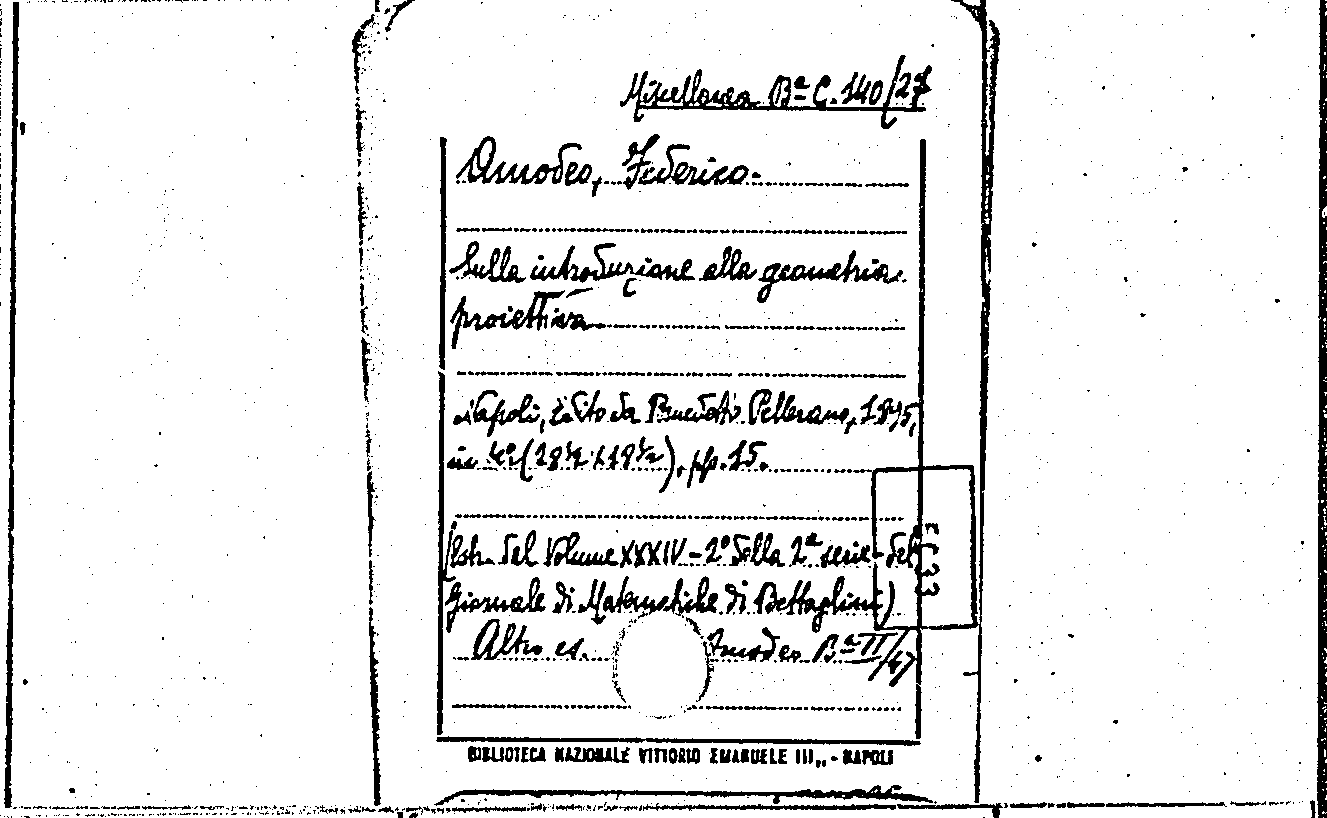 Miscellanea Bª C. 140/27
Amodeo, Federico.
Sulla introduzione alla geometria
proiettiva
Napoli, Edito da Benedetto Pellerano, 1895,
in 4º (28½ x 18½), pp. 15.
(Estr. del Volume XXXIV - 2º della 2ª serie - del
Giornale di Matematiche di Battaglini)
Altro es. Amodeo Bª II/47
BIBLIOTECA NAZIONALE VITTORIO EMANUELE III„ - NAPOLI